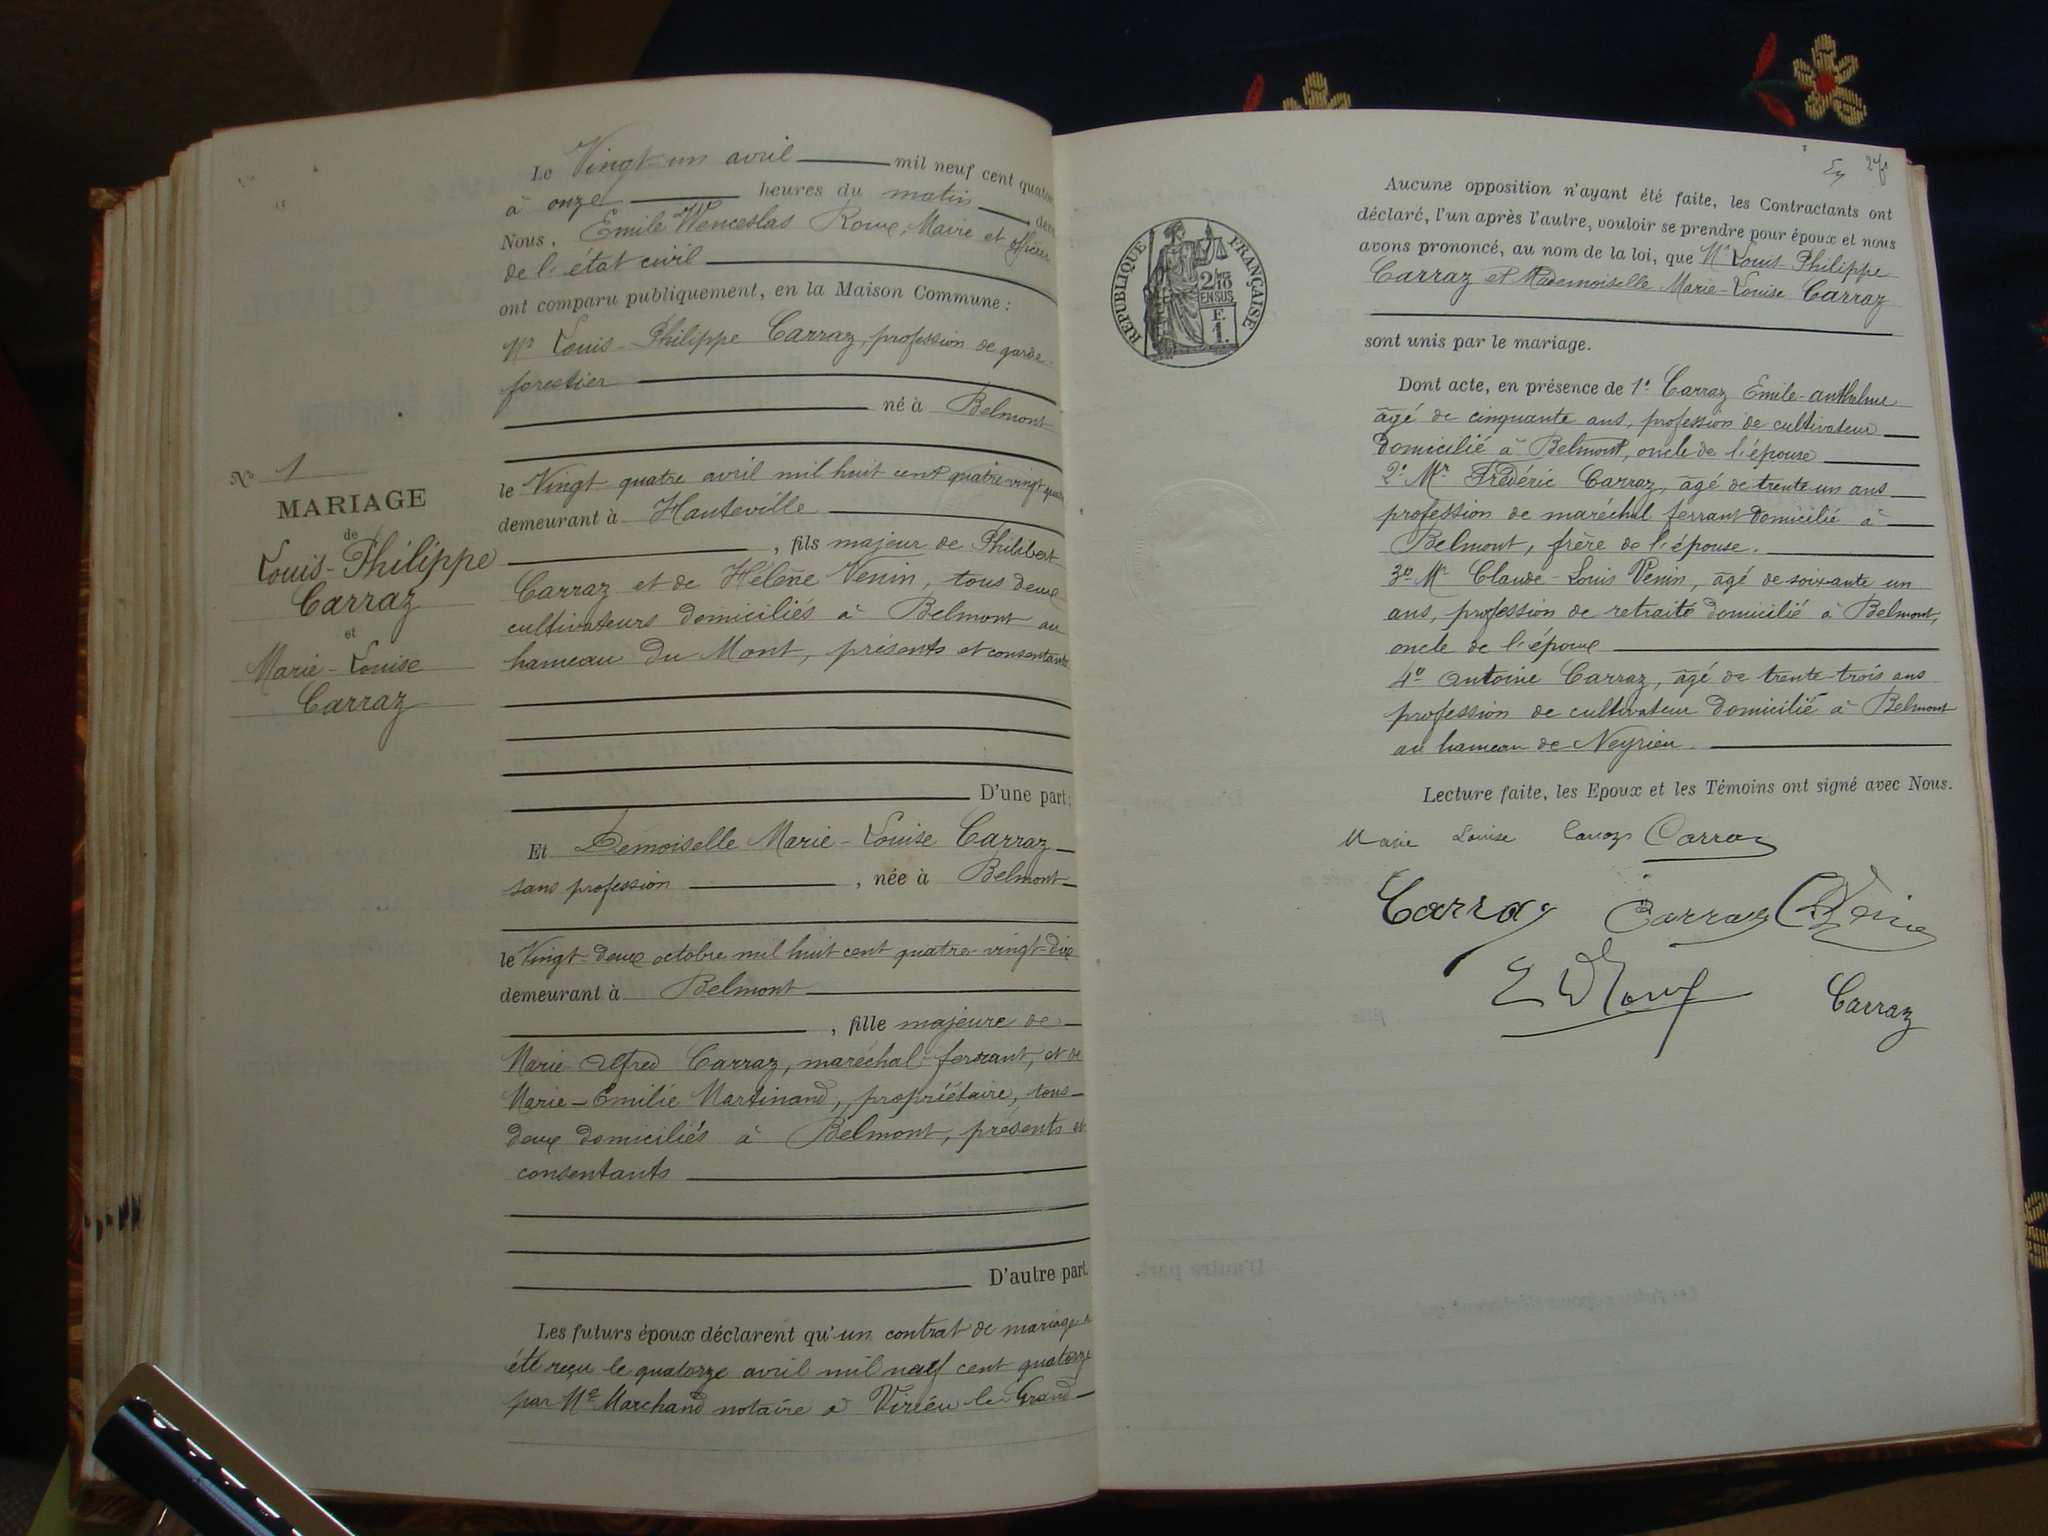 Le Vingt-un avril mil neuf cent quator
à onze heures du matin, dev
Nous, Emile Wenceslas Roux, Maire et officier
de l'état civil
ont comparu publiquement, en la Maison Commune :
Mr Louis-Philippe Carraz, profession de garde-
forestier
né à Belmont
le Vingt-quatre avril mil huit cent quatre-vingt
demeurant à Hauteville
, fils majeur de Philibert
Carraz et de Hélène Venin, tous deux
cultivateurs domiciliés à Belmont au
hameau du Mont, présents et consentants
D'une part ;
N° 1
MARIAGE
de
Louis-Philippe
Carraz
et
Marie-Louise
Carraz
Et Demoiselle Marie-Louise Carraz
sans profession, née à Belmont
le Vingt-deux octobre mil huit cent quatre-vingt-dix
demeurant à Belmont
, fille majeure de
Marie Alfred Carraz, maréchal-ferrant, et de
Marie-Emilie Martinand, propriétaire, tous
deux domiciliés à Belmont, présents et
consentants
D'autre part.
Les futurs époux déclarent qu'un contrat de mariage a
été reçu le quatorze avril mil neuf cent quatorze
par Me Marchand notaire à Virieu-le-Grand
RÉPUBLIQUE FRANÇAISE
2/10
EN SUS
F.
1.
Aucune opposition n'ayant été faite, les Contractants ont
déclaré, l'un après l'autre, vouloir se prendre pour époux et nous
avons prononcé, au nom de la loi, que Mr Louis-Philippe
Carraz et Mademoiselle Marie-Louise Carraz
sont unis par le mariage.
Dont acte, en présence de 1° Carraz Emile-anthelme
âgé de cinquante ans, profession de cultivateur
domicilié à Belmont, oncle de l'épouse
2° Mr Frédéric Carraz, âgé de trente-un ans
profession de maréchal ferrant domicilié à
Belmont, frère de l'épouse.
3° Mr Claude-Louis Venin, âgé de soixante un
ans, profession de retraité domicilié à Belmont,
oncle de l'époux
4° Antoine Carraz, âgé de trente-trois ans
profession de cultivateur domicilié à Belmont
au hameau de Neyrieu.
Lecture faite, les Epoux et les Témoins ont signé avec Nous.
Marie Louise Carraz Carraz
Carraz Carraz Venin
E W Roux Carraz